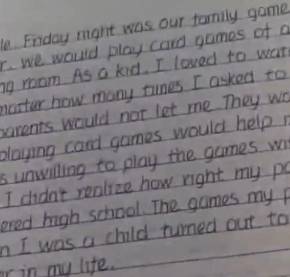 le. Friday night was our family game
r. We would play card games of a
ng room. As a kid, I loved to wat
matter how many times I asked to
parents would not let me. They wo
playing card games would help m
s unwilling to play the games wi
I didn't realize how right my pa
ered high school. The games my p
n I was a child turned out to
r in my life.